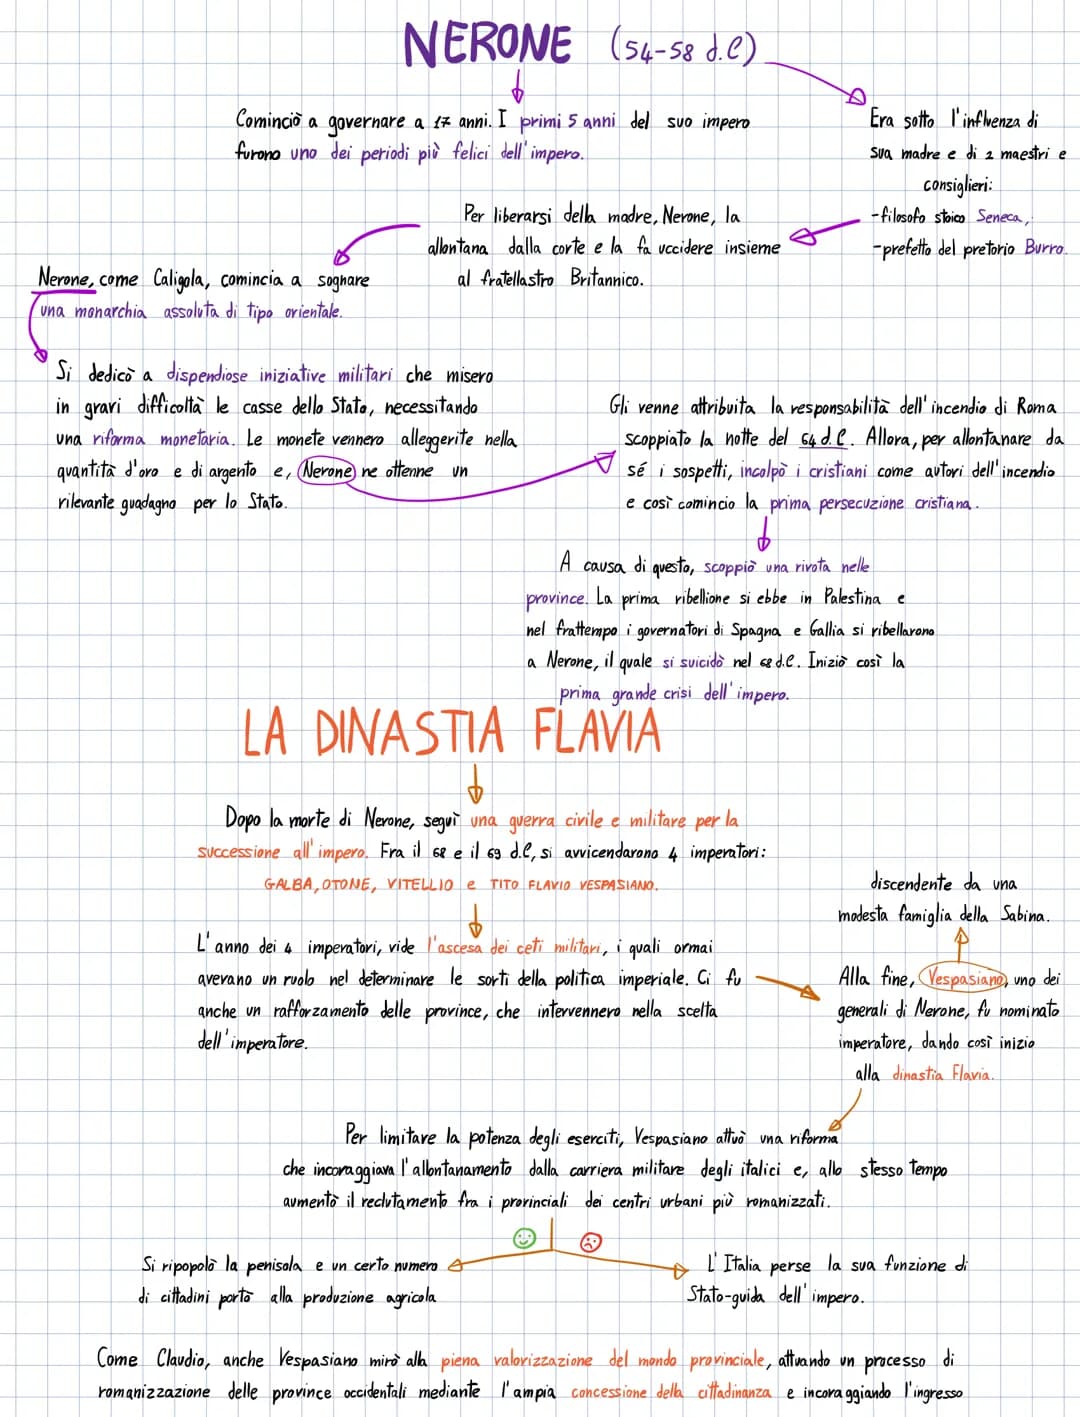 NERONE (54-58 d.C)
Cominciò a governare a 17 anni. I primi 5 anni del suo impero
furono uno dei periodi più felici dell'impero.
Era sotto l'influenza di
sua madre e di 2 maestri e
consiglieri:
-filosofo stoico Seneca,
-prefetto del pretorio Burro.
Per liberarsi della madre, Nerone, la
allontana dalla corte e la fa uccidere insieme
al fratellastro Britannico.
Nerone, come Caligola, comincia a sognare
una monarchia assoluta di tipo orientale.
Si dedicò a dispendiose iniziative militari che misero
in gravi difficoltà le casse dello Stato, necessitando
una riforma monetaria. Le monete vennero alleggerite nella
quantità d'oro e di argento e, Nerone ne ottenne un
rilevante guadagno per lo Stato.
Gli venne attribuita la responsabilità dell'incendio di Roma
scoppiato la notte del 64 d.C. Allora, per allontanare da
sé i sospetti, incolpò i cristiani come autori dell'incendio
e così comincio la prima persecuzione cristiana.
A causa di questo, scoppiò una rivota nelle
province. La prima ribellione si ebbe in Palestina e
nel frattempo i governatori di Spagna e Gallia si ribellarono
a Nerone, il quale si suicidò nel 68 d.C. Iniziò così la
prima grande crisi dell'impero.
LA DINASTIA FLAVIA
Dopo la morte di Nerone, seguì una guerra civile e militare per la
successione all'impero. Fra il 68 e il 69 d.C, si avvicendarono 4 imperatori:
GALBA, OTONE, VITELLIO e TITO FLAVIO VESPASIANO.
L'anno dei 4 imperatori, vide l'ascesa dei ceti militari, i quali ormai
avevano un ruolo nel determinare le sorti della politica imperiale. Ci fu
anche un rafforzamento delle province, che intervennero nella scelta
dell'imperatore.
discendente da una
modesta famiglia della Sabina.
Alla fine, Vespasiano, uno dei
generali di Nerone, fu nominato
imperatore, dando così inizio
alla dinastia Flavia.
Per limitare la potenza degli eserciti, Vespasiano attuò una riforma
che incoraggiava l'allontanamento dalla carriera militare degli italici e, allo stesso tempo
aumentò il reclutamento fra i provinciali dei centri urbani più romanizzati.
Si ripopolò la penisola e un certo numero
di cittadini portò alla produzione agricola
L'Italia perse la sua funzione di
Stato-guida dell'impero.
Come Claudio, anche Vespasiano mirò alla piena valorizzazione del mondo provinciale, attuando un processo di
romanizzazione delle province occidentali mediante l'ampia concessione della cittadinanza e incoraggiando l'ingresso